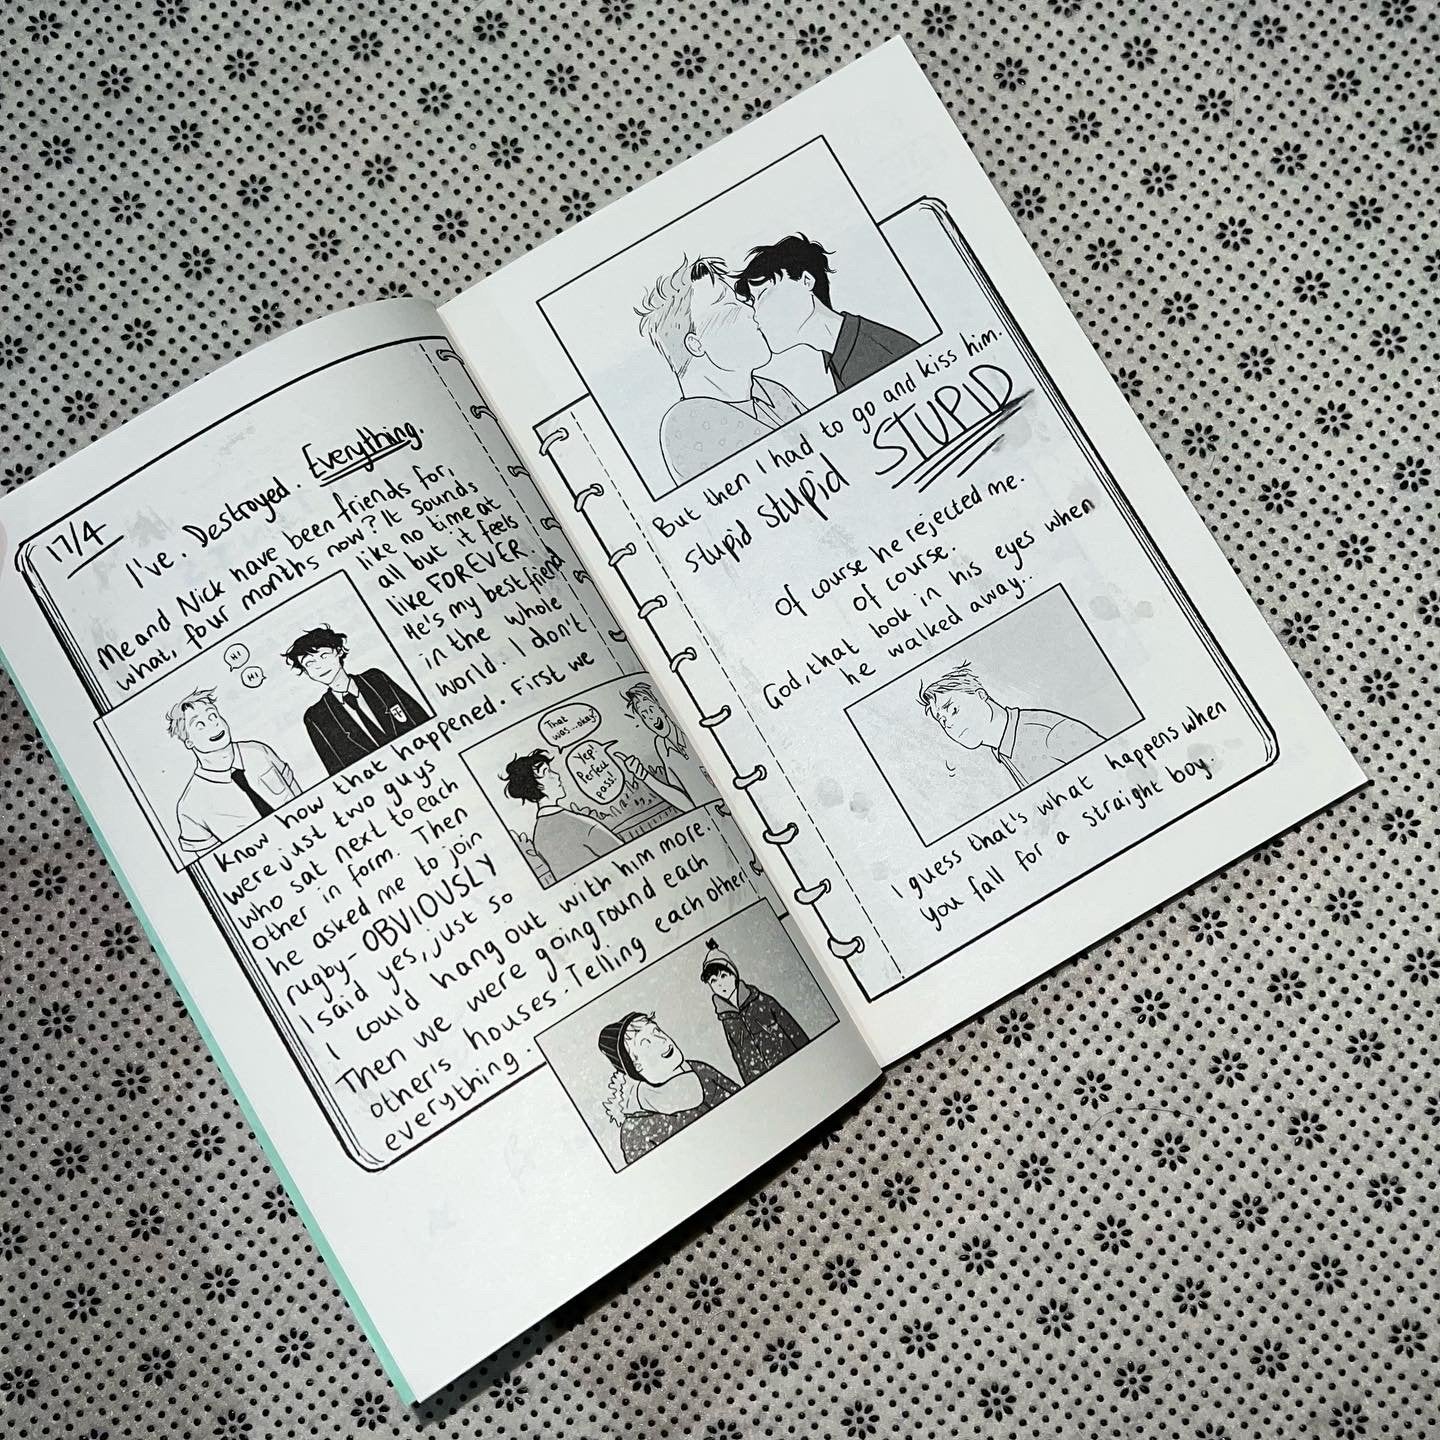 17/4
I've. Destroyed. Everything.
Me and Nick have been friends for,
what, four months now? It sounds
like no time at
all but it feels
like FOREVER.
He's my best friend
in the whole
world. I don't
HI
HI
know how that happened. First we
were just two guys
who sat next to each
other in form. Then
he asked me to join
rugby- OBVIOUSLY
I said yes, just so
I could hang out with him more.
Then we were going round each
other's houses. Telling each other
everything.
That
was...okay?
Yep!
Perfect
pass!
But then I had to go and kiss him.
stupid stupid STUPID
of course he rejected me.
of course.
God, that look in his eyes when
he walked away..
I guess that's what happens when
you fall for a straight boy.